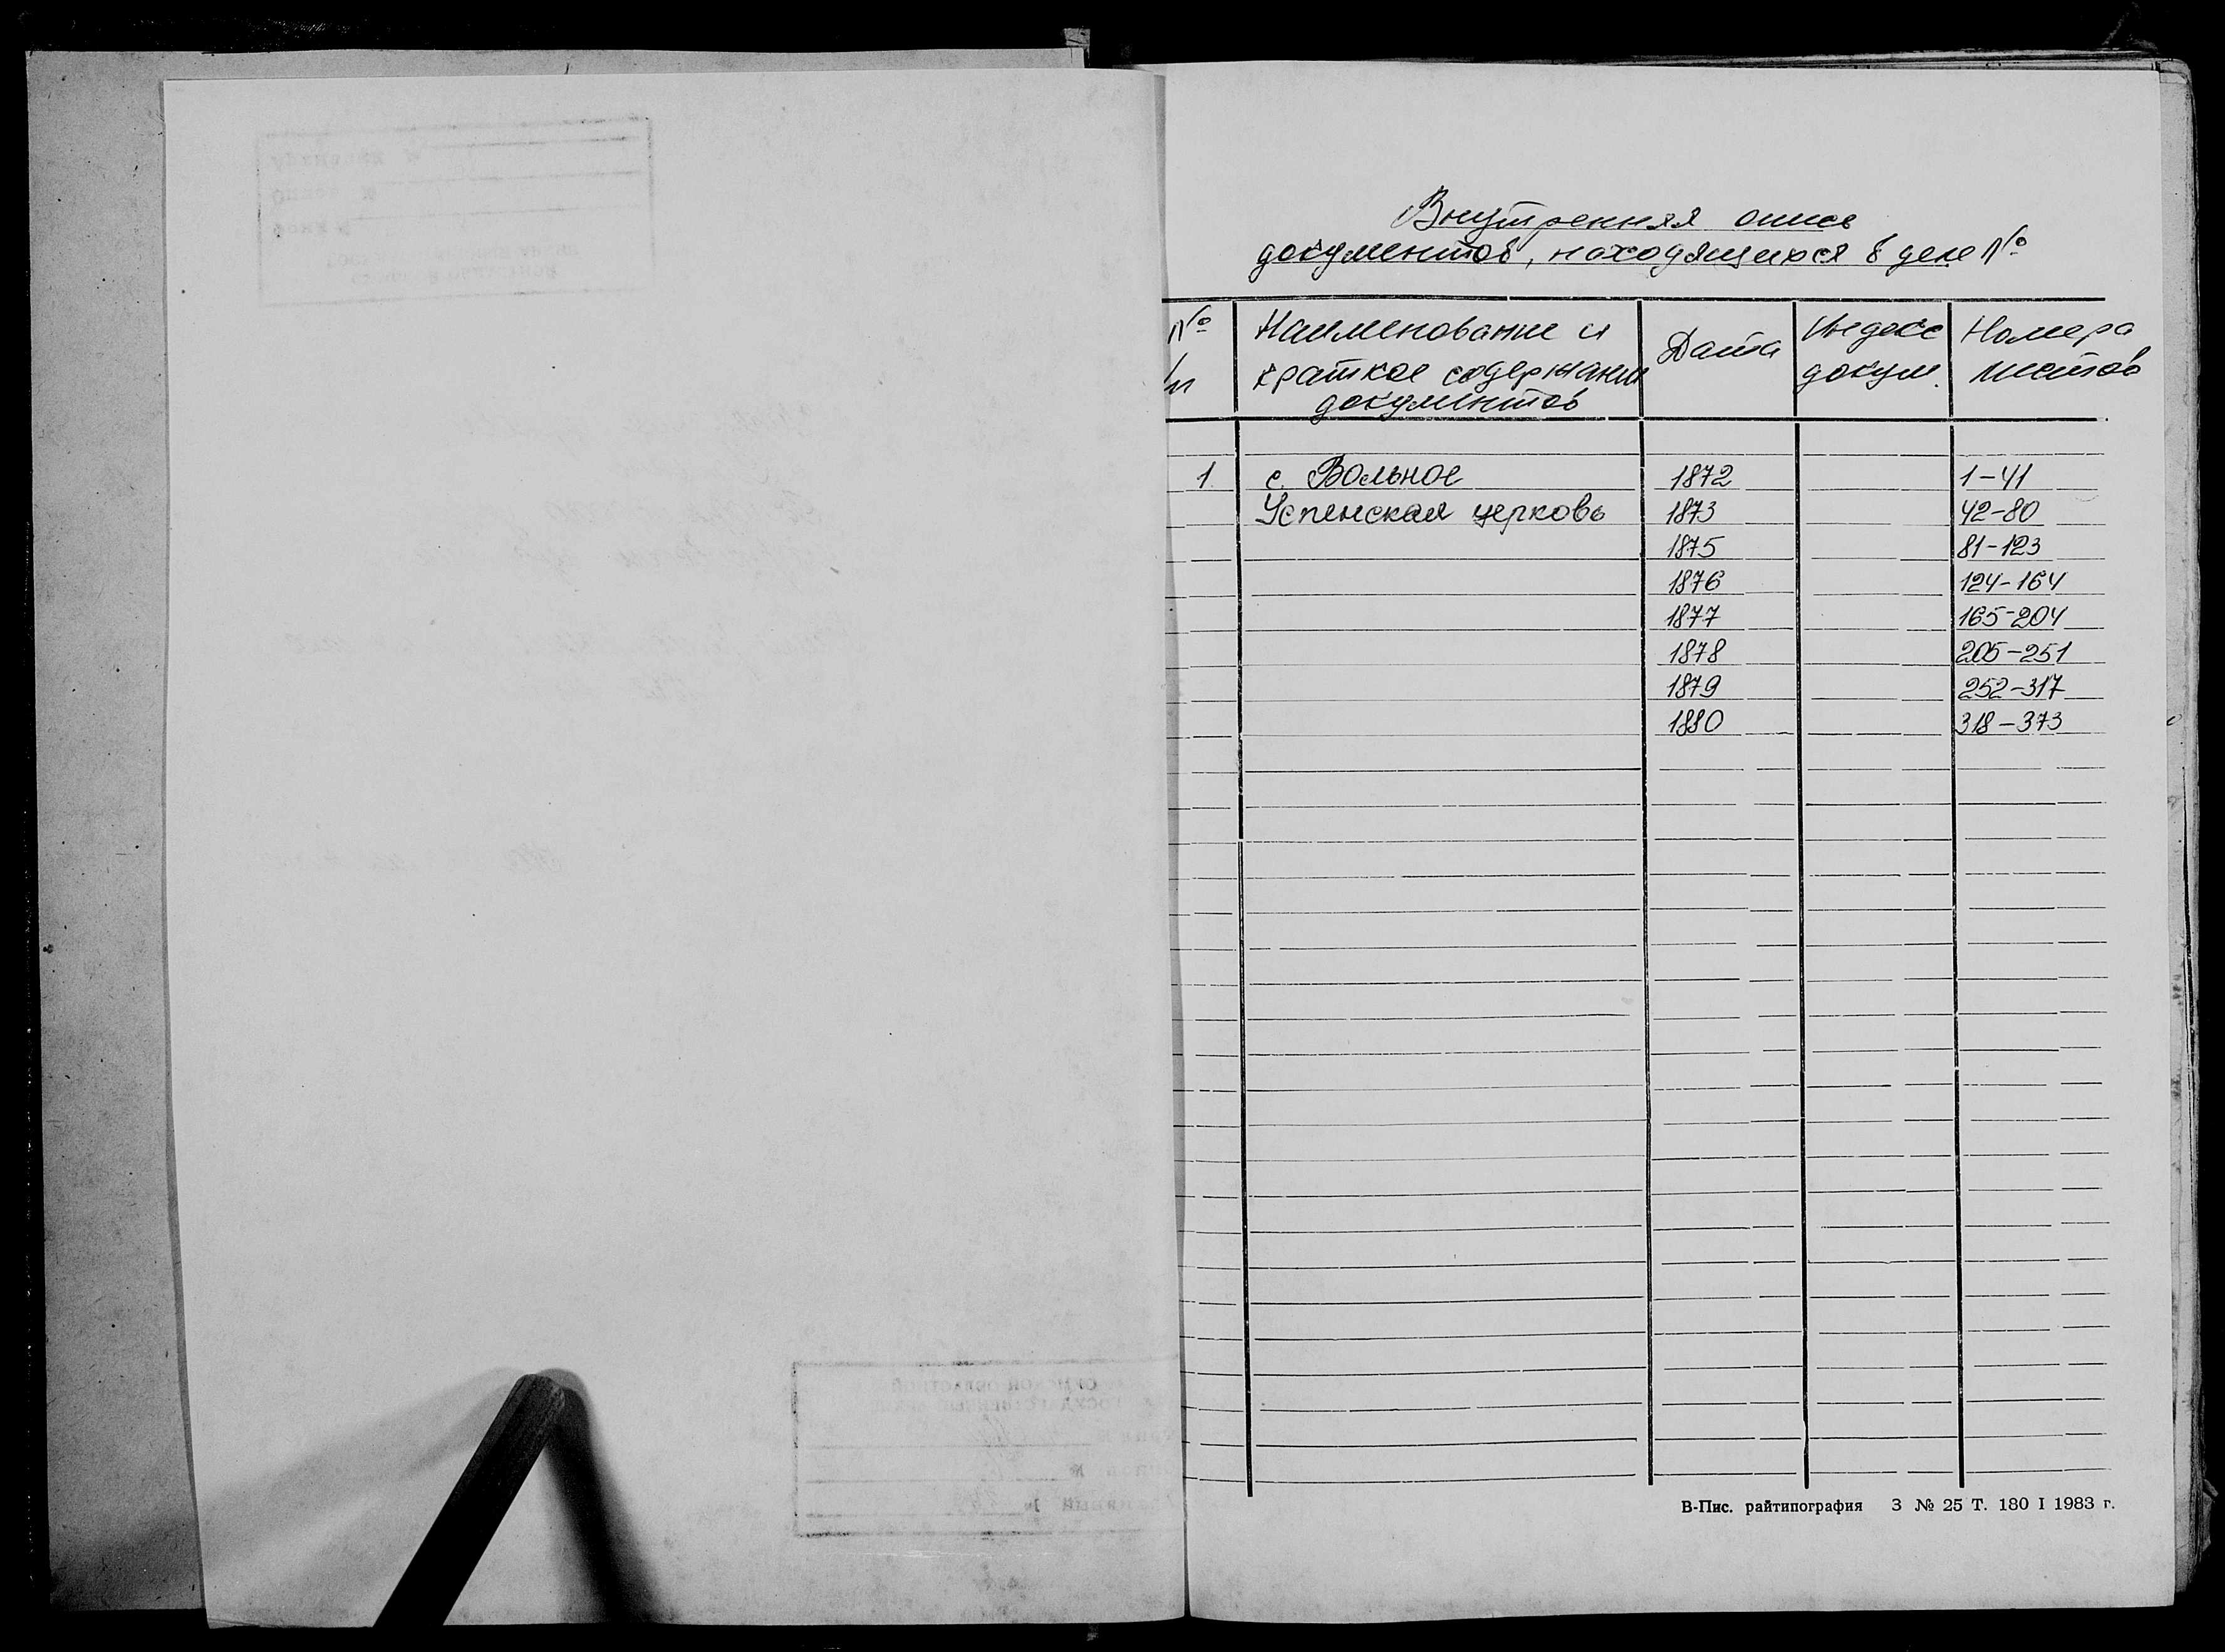 Внутренняя опись
документов, находящихся в деле №
№ Наименование и Дата Индекс Номера
/п краткое содержание докум. листов
документов
1 с. Вольное 1872 1-41
Успенская церковь 1873 42-80
1875 81-123
1876 124-164
1877 165-204
1878 205-251
1879 252-317
1880 318-373
В-Пис. райтипография З № 25 Т. 180 I 1983 г.